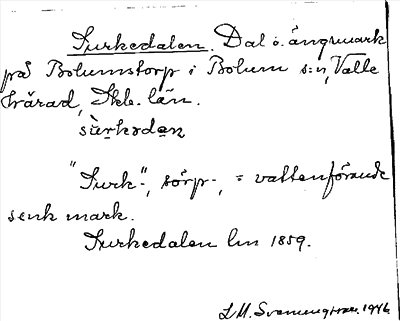 Surkedalen. Dal o. ängsmark
på Bolumstorp i Bolum s:n, Valle
härad, Skb. län.
sùrkədan
"Surk-", sörp-, = vattenförande
senk mark.
Surkedalen lm 1859.
L.M. Svenungsson. 1946